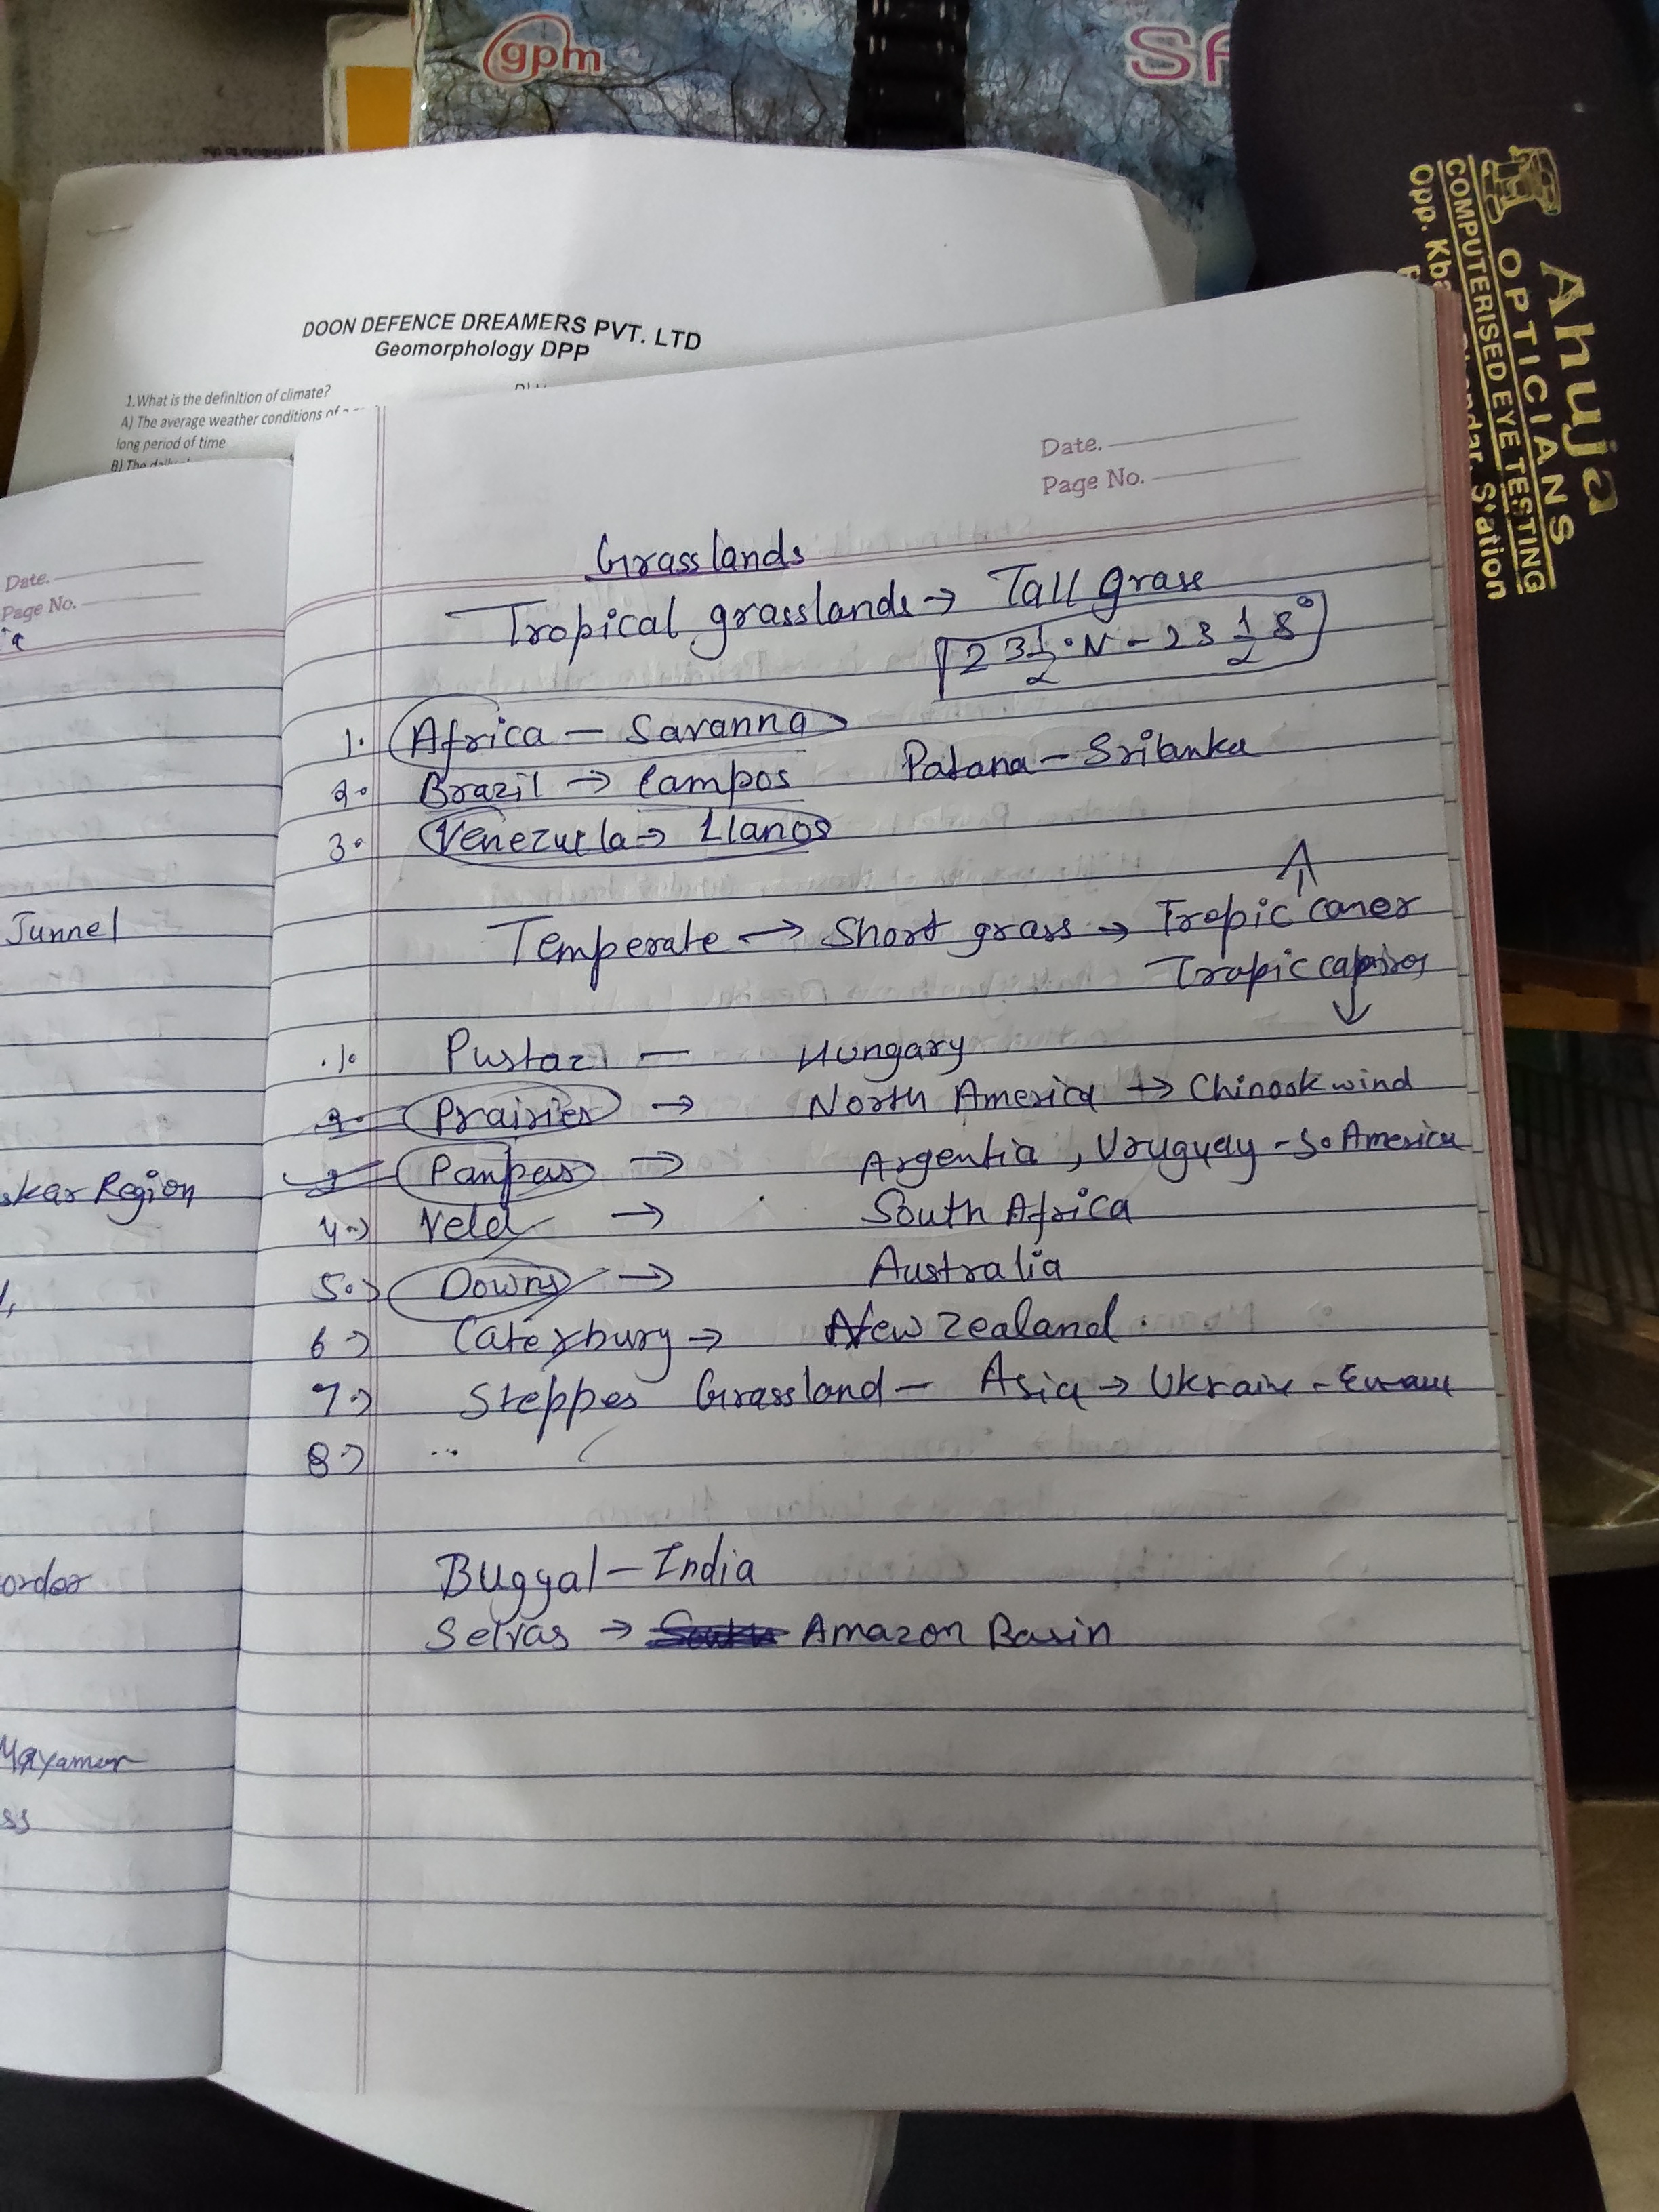 gpm
SA
Ahuja
OPTICIANS
COMPUTERISED EYE TESTING
Opp. Station
DOON DEFENCE DREAMERS PVT. LTD
Geomorphology DPP
1.What is the definition of climate?
A) The average weather conditions of
long period of time
B) The
Date.
Page No.
Tunnel
skar Region
order
Mayamer
ss
Date.
Page No.
Grasslands
Tropical grasslands → Tall Grass
23 1/2° N - 23 1/2 S°
1. Africa — Savanna
2. Brazil → Campos Patana — Srilanka
3. Venezuela → Llanos
Temperate → Short grass → Tropic caner
Tropic
1. Pustazi — Hungary
2. Prairies → North America → Chinook wind
3 Panpas → Argentia, Uruguay - So America
4.) Veld → South Africa
5.) Downs → Australia
6) Caterbury → New Zealand.
7) Steppes Grassland — Asia → Ukraine -
8) ...
Buggyal — India
Selvas → Amazon Basin